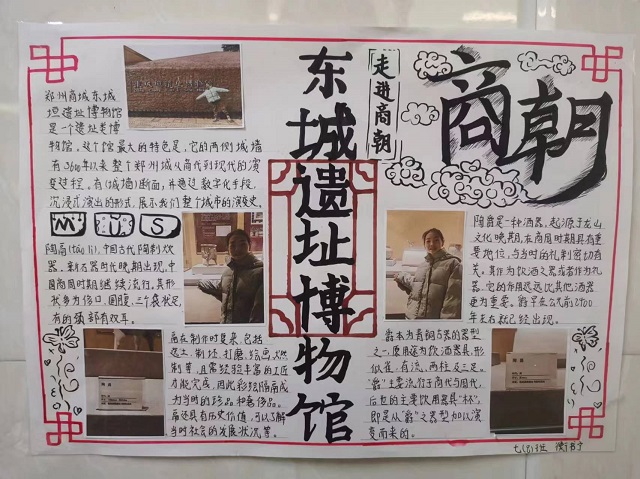 东城遗址博物馆
走进商朝
商朝
郑州商城东城
垣遗址博物馆
是一个遗址类博
物馆。这个馆最大的特色是,它的两侧城墙
有3600年以来整个郑州城从商代到现代的演
变过程,有(城墙)断面,并通过数字化手段,
沉浸式演出的形式,展示我们整个城市的演变史。
MUS
陶鬲(táo lì),中国古代陶制炊
器。新石器时代晚期出现,中
国商周时期继续流行。其形
状多为侈口,圆腹,三个袋状足,
有的颈部有双耳。
鬲在制作时复杂,包括
选土、制坯、打磨、绘画、烧
制等,且需经验丰富的工匠
方能完成,因此彩绘陶鬲成
为当时的珍品和奢侈品。
鬲还具有历史价值,可以了解
当时社会的发展状况等。
陶爵是一种酒器,起源于龙山
文化晚期,在商周时期具有重
要地位,与当时的礼制密切有
关。其作为饮酒之器或者作为礼
器,它的作用远远比其他酒器
更为重要。爵早在公元前2100
年左右就已经出现。
爵本为青铜古器的器型
之一,原用途为饮酒器具,形
似雀,有流、两柱及三足。
"爵"主要流行于商代与周代,
后世的主要饮用器具"杯",
即是从"爵"之器型加以演
变而来的。